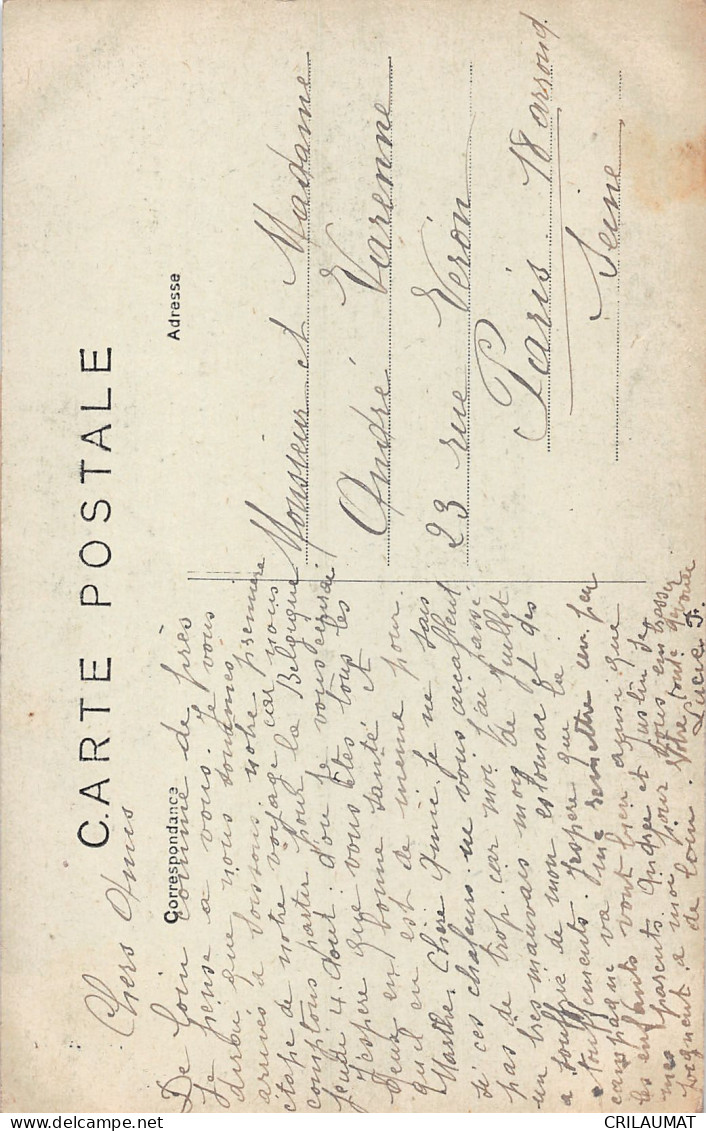 CARTE POSTALE
Correspondance
Adresse
Chers Amis
De Loin comme de près
Je pense a vous. Je vous
dirai que nous sommes
arrivés a Soissons. notre première
étape de notre voyage car nous
comptons partir pour la Belgique
jeudi 4. Aout. d'ou je vous écrirai
J'espère que vous êtes tous les
deux en bonne santé et
qu'il en est de meme pour
Marthe. Chère Amie. Je ne sais
si ces chaleurs ne vous accablent
pas de trop car moi j'ai passé
un tres mauvais mois de Juillet
a souffrir de mon estomac et des
étouffements. J'espère que la
campagne va me remettre un peu
les enfants vont bien ainsi que
mes parents. Andrée et Justin se
joignent a moi pour vous embrasser
de loin. Votre toute dévouée
Lucie F.
Monsieur et Madame
André Varenne
23 rue Véron
Paris 18 arrond.
Seine
CRILAUMAT